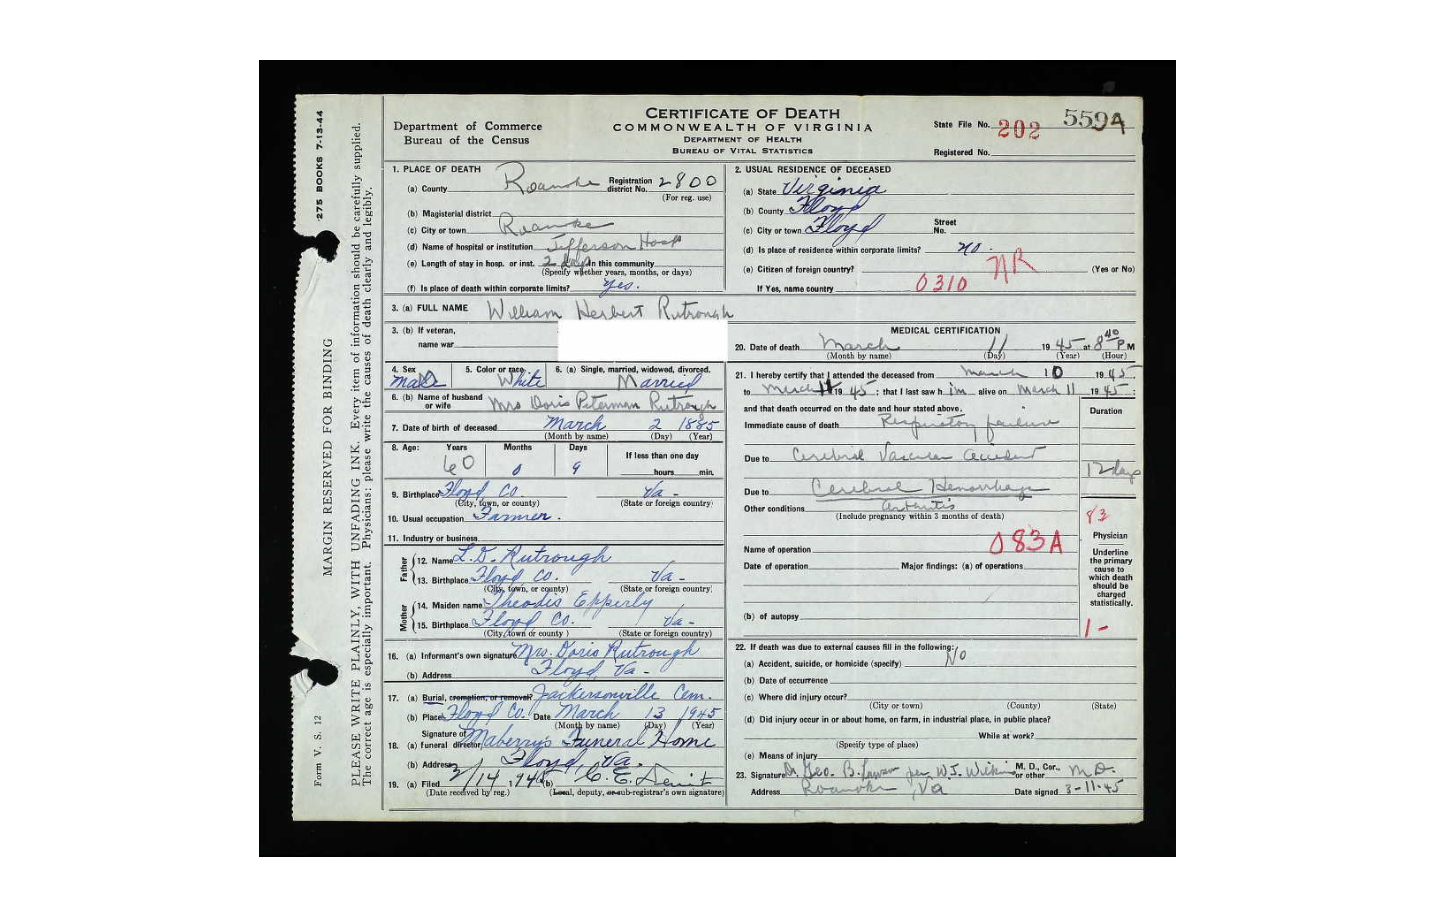 275 BOOKS 7-13-44
MARGIN RESERVED FOR BINDING
Form V. S. 12
PLEASE WRITE PLAINLY, WITH UNFADING INK. Every item of information should be carefully supplied.
The correct age is especially important. Physicians: please write the causes of death clearly and legibly.
Department of Commerce
Bureau of the Census
CERTIFICATE OF DEATH
COMMONWEALTH OF VIRGINIA
DEPARTMENT OF HEALTH
BUREAU OF VITAL STATISTICS
State File No. 202 5594
Registered No.
1. PLACE OF DEATH
(a) County Roanoke Registration district No. 2800
(For reg. use)
(b) Magisterial district
(c) City or town Roanoke
(d) Name of hospital or institution Jefferson Hosp
(e) Length of stay in hosp. or inst. 2 days In this community
(Specify whether years, months, or days)
(f) Is place of death within corporate limits? yes.
2. USUAL RESIDENCE OF DECEASED
(a) State Virginia
(b) County Floyd
(c) City or town Floyd Street No.
(d) Is place of residence within corporate limits? no.
(e) Citizen of foreign country? NR (Yes or No)
If Yes, name country 0310
3. (a) FULL NAME William Herbert Rutrough
3. (b) If veteran,
name war
4. Sex Male 5. Color or race White 6. (a) Single, married, widowed, divorced. Married
6. (b) Name of husband or wife Mrs Doris Peterman Rutrough
7. Date of birth of deceased March 2 1885
(Month by name) (Day) (Year)
8. Age: Years Months Days If less than one day
60 0 9 hours min.
9. Birthplace Floyd Co. Va-
(City, town, or county) (State or foreign country)
10. Usual occupation Farmer.
11. Industry or business
Father
12. Name L.D. Rutrough
13. Birthplace Floyd Co. Va-
(City, town, or county) (State or foreign country)
Mother
14. Maiden name Theodis Epperly
15. Birthplace Floyd Co. Va-
(City, town or county ) (State or foreign country)
16. (a) Informant's own signature Mrs. Doris Rutrough
(b) Address Floyd, Va-
17. (a) Burial, cremation, or removal? Jacksonville Cem.
(b) Place Floyd Co. Date March 13 1945
(Month by name) (Day) (Year)
18. Signature of (a) funeral director Maberry's Funeral Home
(b) Address Floyd, Va.
19. (a) Filed 3/14 1945 (b) C. E.
(Date received by reg.) (Local, deputy, or sub-registrar's own signature)
MEDICAL CERTIFICATION
20. Date of death March 11 1945 at 8:40 P M
(Month by name) (Day) (Year) (Hour)
21. I hereby certify that I attended the deceased from March 10 1945
to March 11 1945 ; that I last saw him alive on March 11 1945 ;
and that death occurred on the date and hour stated above. Duration
Immediate cause of death Respiratory failure
Due to Cerebral Vascular accident 12 days
Due to Cerebral Hemorrhage
Other conditions arthritis
(Include pregnancy within 3 months of death)
83
Name of operation 083A
Date of operation Major findings: (a) of operations
(b) of autopsy
Physician
Underline
the primary
cause to
which death
should be
charged
statistically.
1-
22. If death was due to external causes fill in the following:
(a) Accident, suicide, or homicide (specify) No
(b) Date of occurrence
(c) Where did injury occur?
(City or town) (County) (State)
(d) Did injury occur in or about home, on farm, in industrial place, in public place?
While at work?
(Specify type of place)
(e) Means of injury
23. Signature Dr. Geo. B. Lawson per W. J. M. D., Cor., or other M.D.
Address Roanoke, Va Date signed 3-11-45